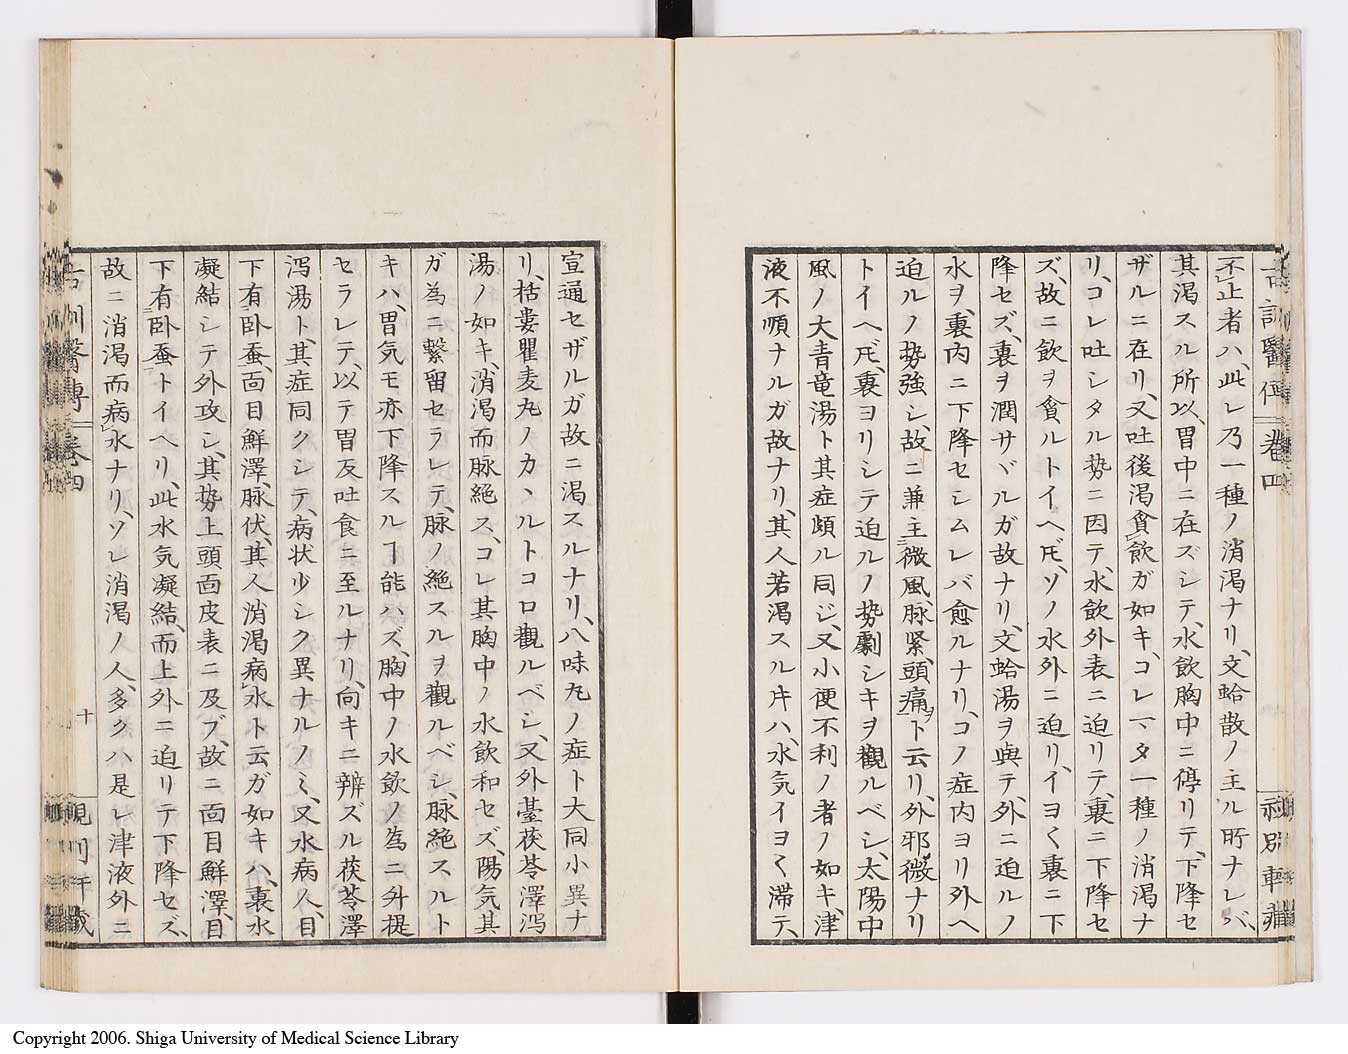 古訓醫傳 卷四
不止者ハ、此レ乃一種ノ消渇ナリ、文蛤散ノ主ル所ナレバ、
其渇スル所以、胃中ニ在ズシテ、水飲胸中ニ停リテ、下降セ
ザルニ在リ、又吐後渇貪飲ガ如キ、コレマタ一種ノ消渇ナ
リ、コレ吐シタル勢ニ因テ、水飲外表ニ迫リテ、裏ニ下降セ
ズ、故ニ飲ヲ貪ルトイヘ𪜈、ソノ水外ニ迫リ、イヨ〱裏ニ下
降セズ、裏ヲ潤サヾルガ故ナリ、文蛤湯ヲ與テ、外ニ迫ルノ
水ヲ、裏内ニ下降セシムレバ愈ルナリ、コノ症内ヨリ外ヘ
迫ルノ勢強シ、故ニ兼主微風脉緊、頭痛ヲト云リ、外邪微ナリ
トイヘ𪜈、裏ヨリシテ迫ルノ勢劇シキヲ觀ルベシ、太陽中
風ノ大青竜湯ト其症頗ル同ジ、又小便不利ノ者ノ如キ、津
液不順ナルガ故ナリ、其人若渇スル片ハ、水気イヨ〱滞テ、
宣通セザルガ故ニ渇スルナリ、八味丸ノ症ト大同小異ナ
リ、栝蔞瞿麦丸ノカヽルトコロ觀ルベシ、又外臺茯苓澤瀉
湯ノ如キ、消渇而脉絶ス、コレ其胸中ノ水飲和セズ、陽気其
ガ為ニ繋留セラレテ、脉ノ絶スルヲ觀ルベシ、脉絶スルト
キハ、胃気モ亦下降スルヿ能ハズ、胸中ノ水飲ノ為ニ升提
セラレテ、以テ胃反吐食ニ至ルナリ、向キニ辨ズル茯苓澤
瀉湯ト、其症同クシテ、病状少シク異ナルノミ、又水病人、目
下有臥蚕、面目鮮澤、脉伏、其人消渇、病水ト云ガ如キハ、裏水
凝結シテ外攻シ、其勢上頭面皮表ニ及ブ、故ニ面目鮮澤、目
下有臥蚕トイヘリ、此水気凝結、而上外ニ迫リテ下降セズ、
故ニ消渇而病水ナリ、ソレ消渇ノ人、多クハ是レ津液外ニ
古訓醫傳 卷四
十
Copyright 2006. Shiga University of Medical Science Library